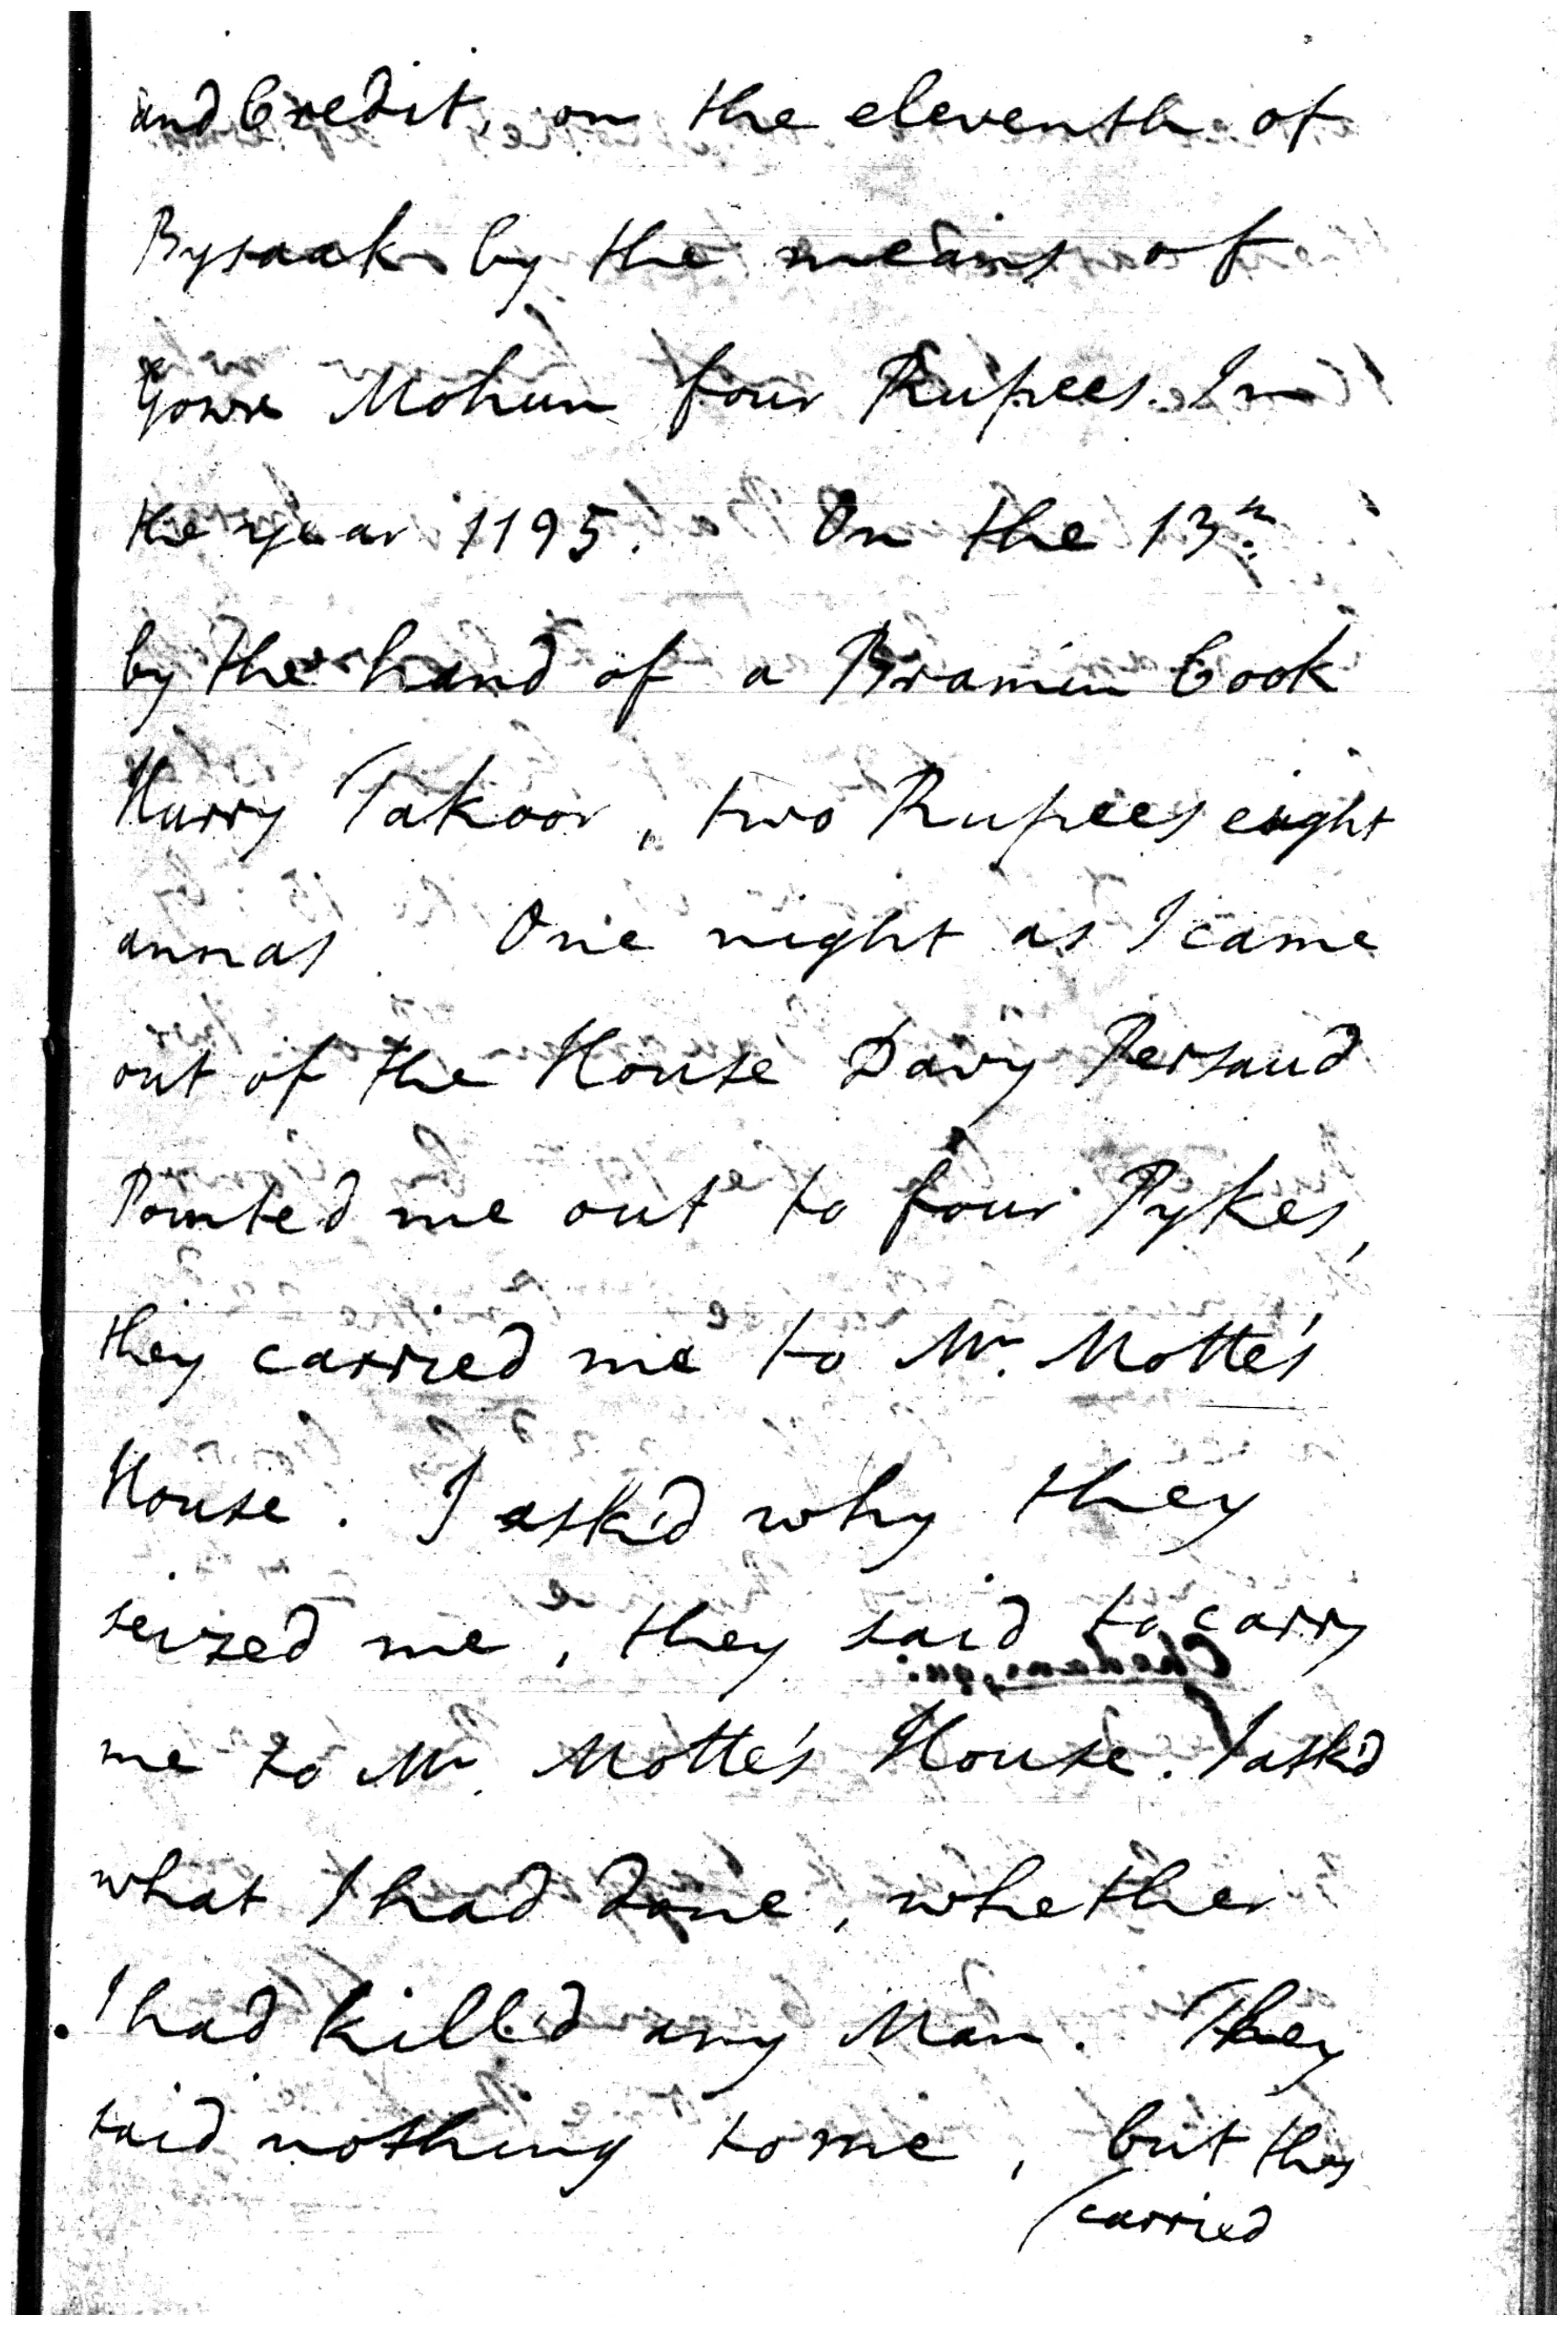 and Credit, on the eleventh of
Bysaak by the means of
Gowre Mohun four Rupees. In
the year 1195. On the 13th
by the hand of a Bramin Cook
Hurry Takoor, two Rupees eight
annas. One night as I came
out of the House Davy Persaud
Pointed me out to four Pykes,
they carried me to Mr. Motte's
House. I ask'd why they
seized me, they said to carry
me to Mr. Motte's House. I ask'd
what I had done, whether
I had kill'd any Man. They
said nothing to me, but they
carried